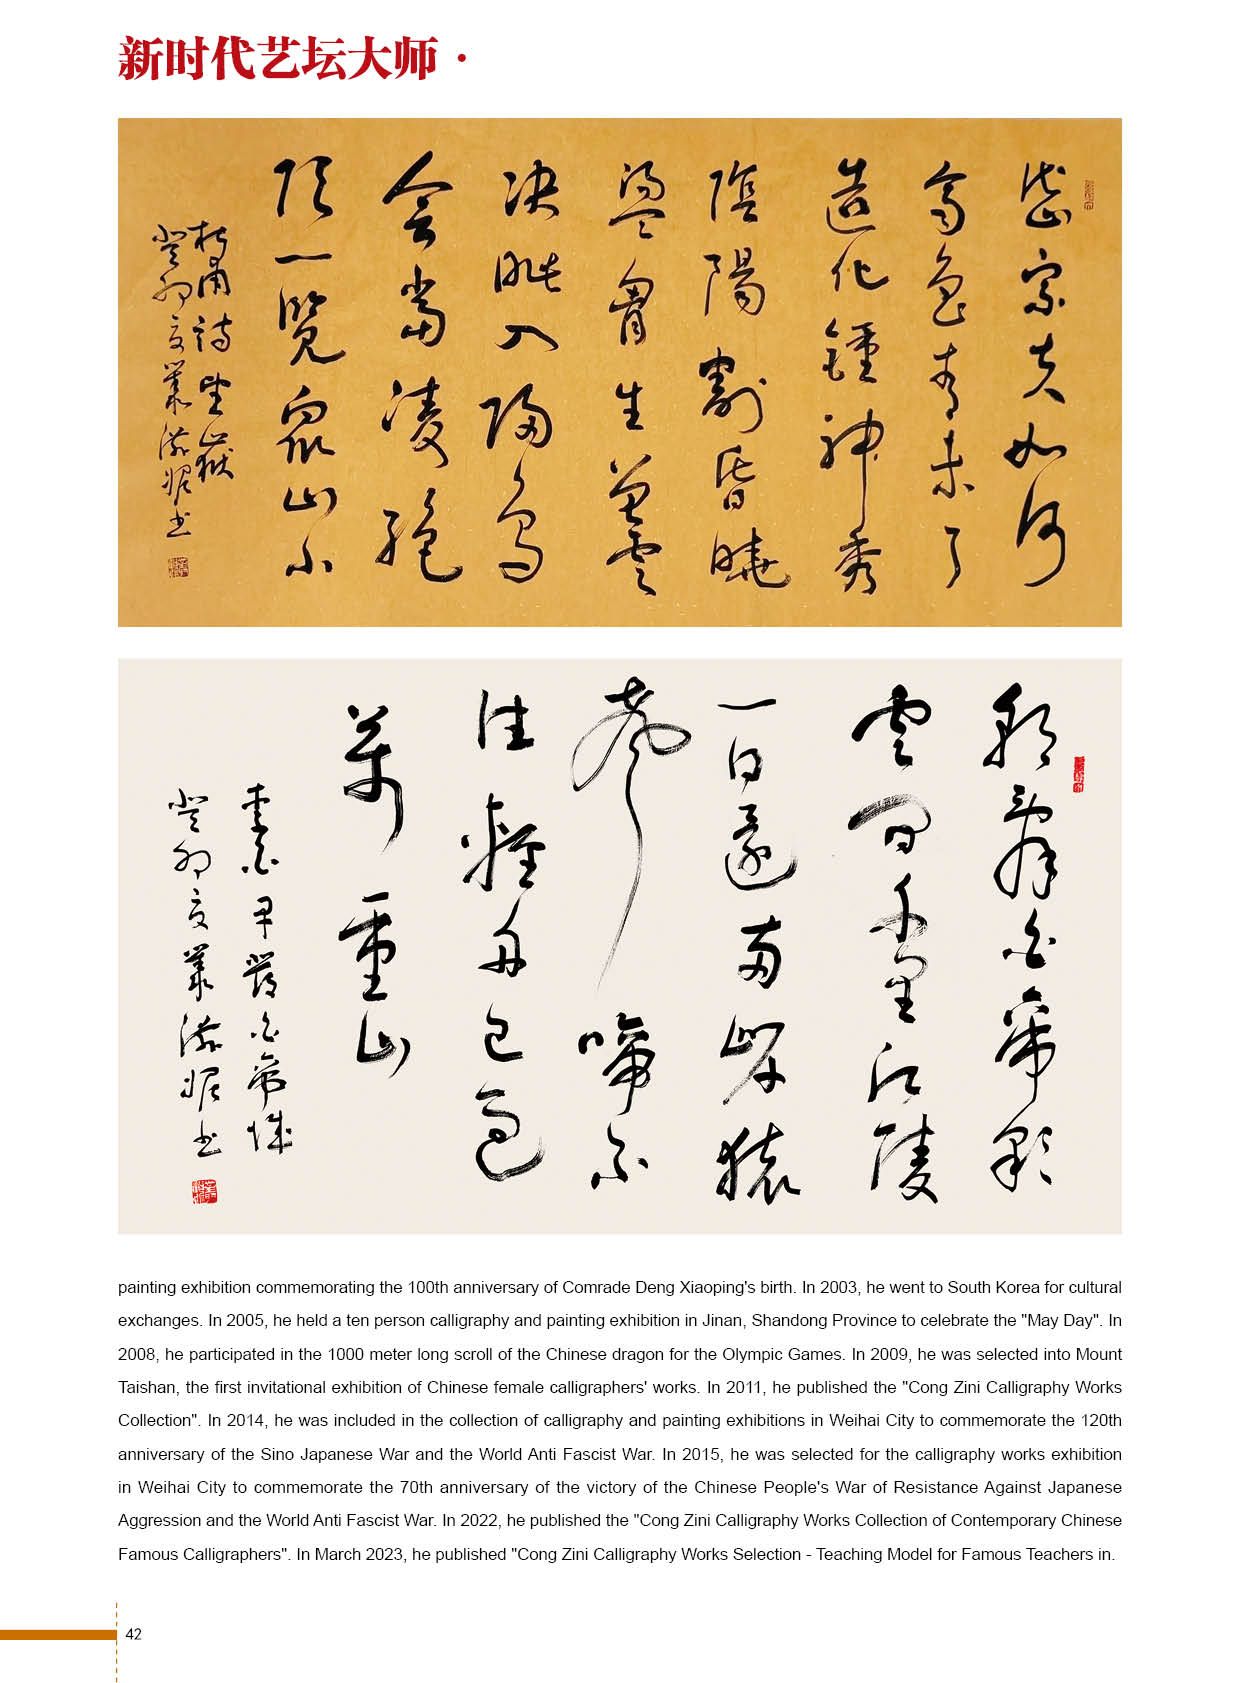 新时代艺坛大师·
岱宗夫如何
齊魯青未了
造化鍾神秀
陰陽割昏曉
盪胷生曾雲
決眥入歸鳥
會當凌絕
頂一覽眾山小
杜甫詩望嶽
癸卯夏叢滋妮书
朝辭白帝彩
雲間千里江陵
一日還兩岸猿
聲啼不
住輕舟已過
萬重山
李白早發白帝城
癸卯夏叢滋妮书
painting exhibition commemorating the 100th anniversary of Comrade Deng Xiaoping's birth. In 2003, he went to South Korea for cultural
exchanges. In 2005, he held a ten person calligraphy and painting exhibition in Jinan, Shandong Province to celebrate the "May Day". In
2008, he participated in the 1000 meter long scroll of the Chinese dragon for the Olympic Games. In 2009, he was selected into Mount
Taishan, the first invitational exhibition of Chinese female calligraphers' works. In 2011, he published the "Cong Zini Calligraphy Works
Collection". In 2014, he was included in the collection of calligraphy and painting exhibitions in Weihai City to commemorate the 120th
anniversary of the Sino Japanese War and the World Anti Fascist War. In 2015, he was selected for the calligraphy works exhibition
in Weihai City to commemorate the 70th anniversary of the victory of the Chinese People's War of Resistance Against Japanese
Aggression and the World Anti Fascist War. In 2022, he published the "Cong Zini Calligraphy Works Collection of Contemporary Chinese
Famous Calligraphers". In March 2023, he published "Cong Zini Calligraphy Works Selection - Teaching Model for Famous Teachers in.
42